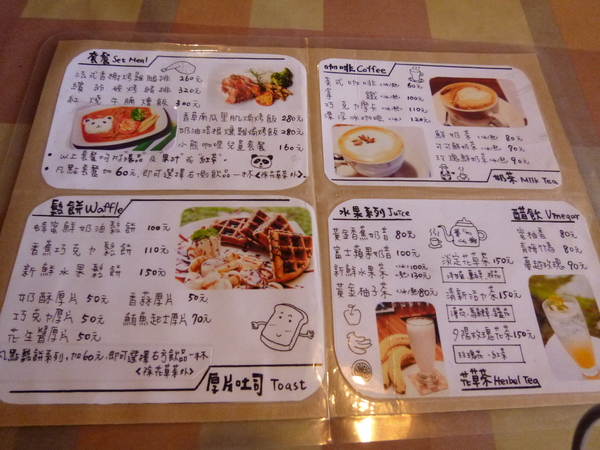 套餐 Set Meal
法式香榭烤雞腿排 260元
豬排 320元
紅燒牛腩燴飯 300元
香草南瓜里肌燉烤飯 280元
奶油培根燻雞焗烤飯 280元
小熊咖哩兒童套餐 160元
凡點套餐加60元,即可選擇右側飲品一杯<除花草茶外>
咖啡 Coffee
美式咖啡 60元
拿鐵 100元
巧克力摩卡 110元
冰咖啡 120元
鮮奶茶 80元
可可鮮奶茶 90元
玫瑰鮮奶茶 90元
奶茶 Milk Tea
鬆餅 Waffle
蜂蜜鮮奶油鬆餅 100元
香蕉巧克力鬆餅 110元
新鮮水果鬆餅 150元
奶酥厚片 50元
香蒜厚片 50元
巧克力厚片 50元
鮪魚起士厚片 70元
花生醬厚片 50元
凡點鬆餅系列,加60元,即可選擇右方飲品一杯
<除花草茶外>
厚片吐司 Toast
水果系列 Juice
黃金香蕉奶昔 80元
富士蘋果奶昔 100元
新鮮水果茶 100元 130元
黃金柚子茶 80元
醋飲 Vinegar
80元
80元
蔓越玫瑰 90元
淡定花草茶 150元
清新活力茶 150元
夕陽玫瑰花茶 150元
花草茶 Heibel Tea